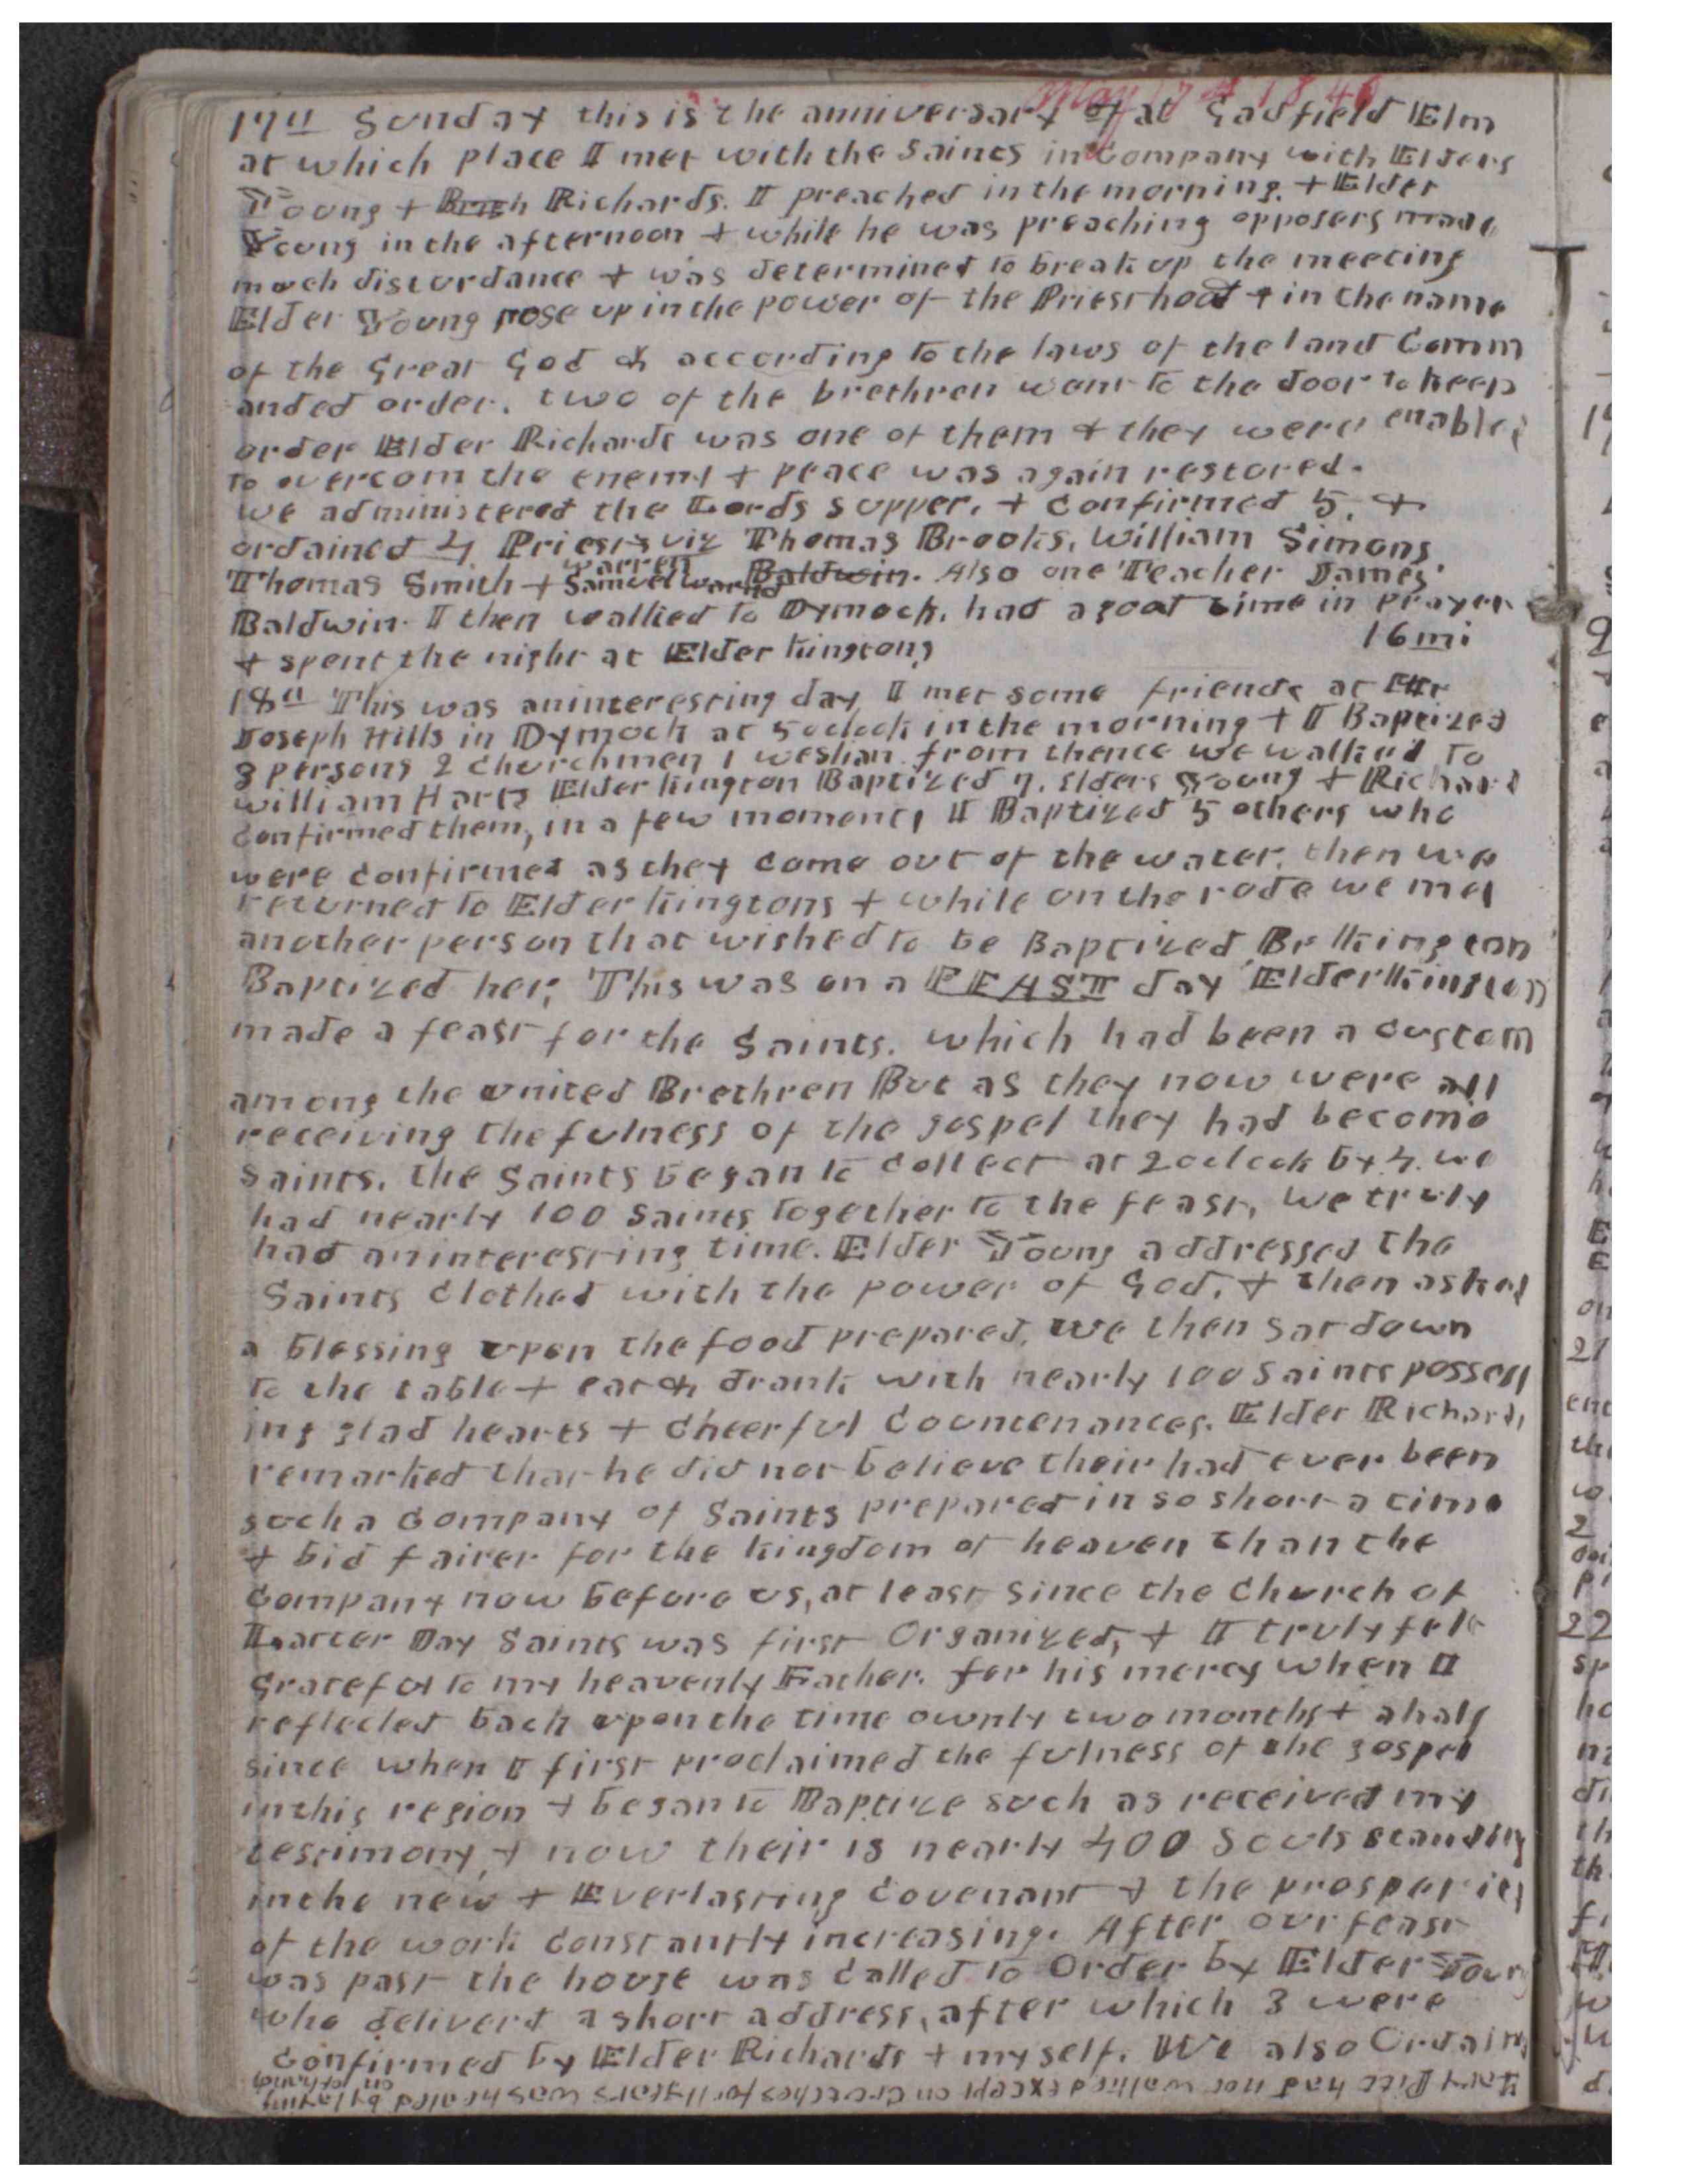 May 17th 1840
17th Sunday this is the anniversary of at Gadfield Elm
at which place I met with the Saints in Company with Elders
Young + Richards. I preached in the morning. + Elder
Young in the afternoon + while he was preaching opposers made
much disturdance + was determined to break up the meeting
Elder Young rose up in the power of the Priesthood + in the name
of the Great God & according to the laws of the land Comm
anded order. two of the brethren went to the door to keep
order Elder Richards was one of them + they were enabled
to overcom the enemy + peace was again restored.
we administered the Lords supper. + Confirmed 5. +
ordained 4 Priests viz Thomas Brooks, William Simons
warren
Thomas Smith + Samuel Warnd Baldwin. Also one Teacher James
Baldwin. I then walked to Dymock. had a good time in prayer
+ spent the night at Elder Kingtons 16 mi
18th This was an interesting day I met some friends at Mr
Joseph Hills in Dymock at 5 oclock in the morning + I Baptized
3 persons 2 Churchmen 1 weslian from thence we walked to
william Harts Elder Kington Baptized 7. Elders Young + Richard
Confirmed them, in a few moments I Baptized 5 others who
were Confirmed as they Came out of the water. then we
returned to Elder Kingtons + while on the rode we met
another person that wished to be Baptized Br Kington
Baptized her, This was on a FEAST day Elder Kington
made a feast for the Saints. which had been a Custom
among the united Brethren But as they now were all
receiving the fulness of the gospel they had become
Saints. the Saints began to Collect at 2 oclock by 4. we
had nearly 100 Saints together to the feast, We truly
had an interesting time. Elder Young addressed the
Saints Clothed with the power of God, + then asked
a blessing upon the food prepared. we then sat down
to the table + eat & drank with nearly 100 Saints possess
ing glad hearts + Cheerful Countenances. Elder Richards
remarked that he did not believe their had ever been
such a Company of Saints prepared in so short a time
+ bid fairer for the kingdom of heaven than the
Company now before us, at least since the Church of
Latter Day Saints was first Organized, + I truly felt
grateful to my heavenly Father. for his mercy when I
reflected back upon the time ownly two months + a half
since when I first proclaimed the fulness of the gospel
in this region + began to Baptize such as received my
testimony, + now their is nearly 400 Souls standing
in the new + Everlasting Covenant + the prosperity
of the work Constantly increasing. After our feast
was past the house was Called to Order by Elder Young
who deliverd a short address, after which 3 were
Confirmed by Elder Richards + myself. We also Ordain
Mary Pitt had not walked except on Crootches for 11 years was healed by laying
on of hand